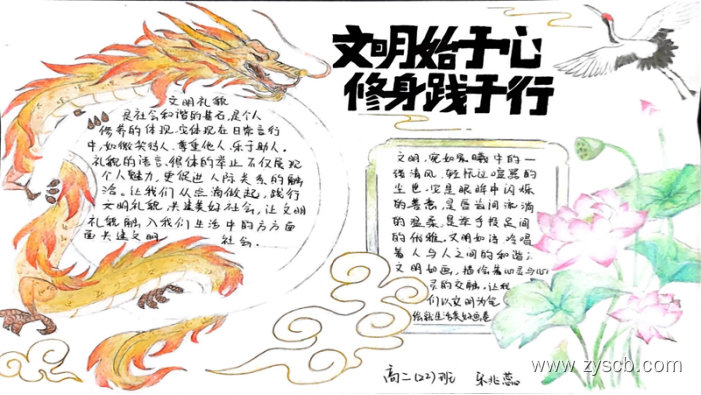 文明始于心
修身践于行
文明礼貌
是社会和谐的基石,是个人
修养的体现.它体现在日常言行
中,如微笑待人、尊重他人、乐于助人。
礼貌的语言、得体的举止,不仅展现
个人魅力,更促进人际关系的融
洽。让我们从点滴做起,践行
文明礼貌,共建美好社会,让文明
礼貌融入我们生活中的方方面
面共建文明社会.
文明,宛如晨曦中的一
缕清风,轻拂过喧嚣的
尘世,它是眼眸中闪烁
的善意,是唇齿间流淌
的温柔,是举手投足间
的优雅.文明如诗,吟唱
着人与人之间的和谐;
文明如画,描绘着心灵与心
灵的交融,让我
们以文明为笔
绘就生活美好画卷
高二(22)班
www.zyscb.com